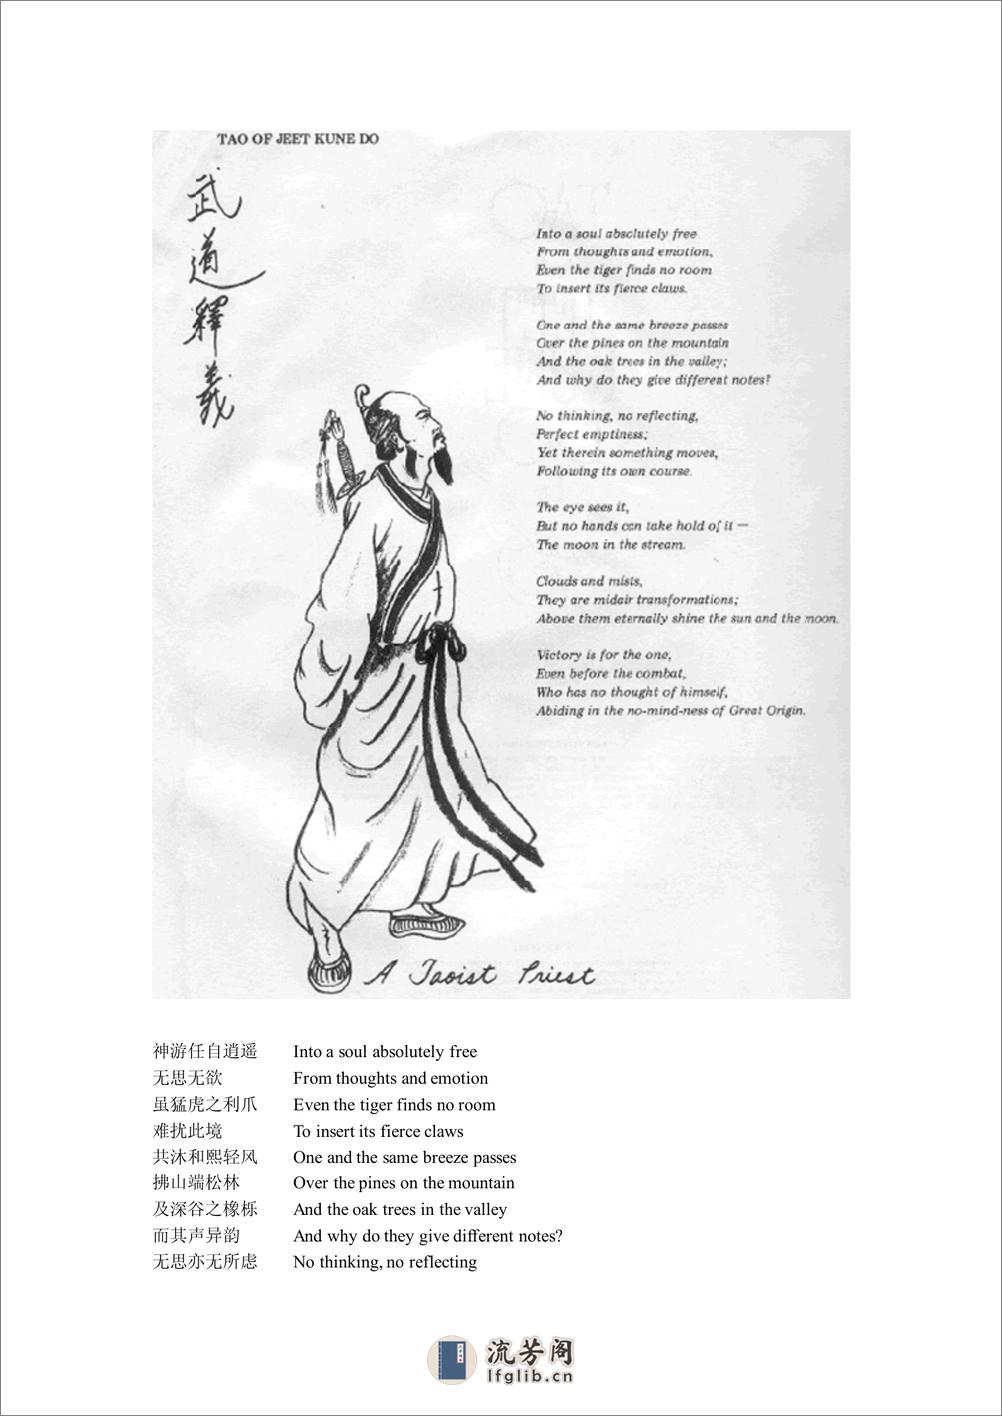 TAO OF JEET KUNE DO
武道釋義
Into a soul absolutely free
From thoughts and emotion,
Even the tiger finds no room
To insert its fierce claws.
One and the same breeze passes
Over the pines on the mountain
And the oak trees in the valley;
And why do they give different notes?
No thinking, no reflecting,
Perfect emptiness;
Yet therein something moves,
Following its own course.
The eye sees it,
But no hands can take hold of it —
The moon in the stream.
Clouds and mists,
They are midair transformations;
Above them eternally shine the sun and the moon.
Victory is for the one,
Even before the combat,
Who has no thought of himself,
Abiding in the no-mind-ness of Great Origin.
A Taoist Priest
神游任自逍遥 Into a soul absolutely free
无思无欲 From thoughts and emotion
虽猛虎之利爪 Even the tiger finds no room
难扰此境 To insert its fierce claws
共沐和熙轻风 One and the same breeze passes
拂山端松林 Over the pines on the mountain
及深谷之橡栎 And the oak trees in the valley
而其声异韵 And why do they give different notes?
无思亦无所虑 No thinking, no reflecting
流芳阁
lfglib.cn